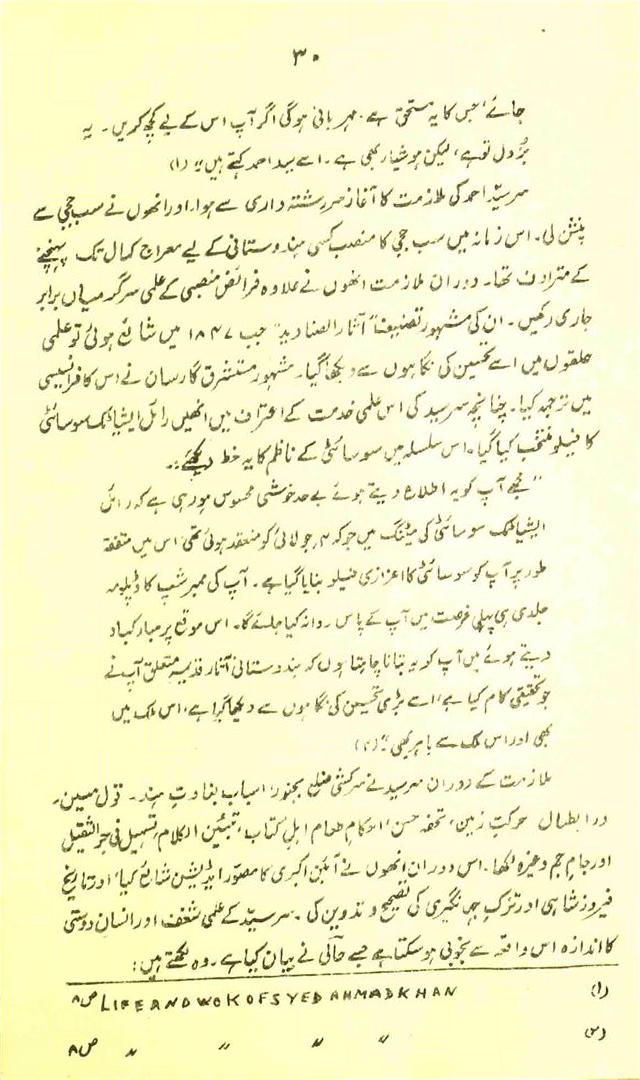 ۳۰
جائے، جس کا یہ مستحق ہے۔ مہربانی ہوگی اگر آپ اس کے لیے کچھ کریں۔ یہ
بزدل تو ہے، لیکن ہوشیار بھی ہے۔ اسے سید احمد کہتے ہیں" (۱)
سرسیّد احمد کی ملازمت کا آغاز سررشتہ داری سے ہوا، اور انھوں نے سب ججی سے
پنشن لی۔ اس زمانہ میں سب ججی کا منصب کسی ہندوستانی کے لیے معراج کمال تک پہنچنے
کے مترادف تھا۔ دوران ملازمت انھوں نے علاوہ فرائض منصبی کے علمی سرگرمیاں برابر
جاری رکھیں۔ ان کی مشہور تصنیف "آثار الصنادید" جب ۱۸۴۷ میں شائع ہوئی تو علمی
حلقوں میں اسے تحسین کی نگاہوں سے دیکھا گیا۔ مشہور مستشرق گارساں نے اس کا فرانسیسی
میں ترجمہ کیا۔ چنانچہ سرسید کی اس علمی خدمت کے اعتراف میں انھیں رائل ایشیاٹک سوسائٹی
کا فیلو منتخب کیا گیا۔ اس سلسلہ میں سوسائٹی کے ناظم کا یہ خط دیکھئے:۔
"مجھے آپ کو یہ اطلاع دیتے ہوئے بے حد خوشی محسوس ہو رہی ہے کہ رائل
ایشیاٹک سوسائٹی کی میٹنگ میں جو کہ ۴ر جولائی کو منعقد ہوئی تھی اس میں متفقہ
طور پر آپ کو سوسائٹی کا اعزازی فیلو بنایا گیا ہے۔ آپ کی ممبر شپ کا ڈپلومہ
جلدی ہی پہلی فرصت میں آپ کے پاس روانہ کیا جائے گا۔ اس موقع پر مبارکباد
دیتے ہوئے میں آپ کو یہ بتانا چاہتا ہوں کہ ہندوستانی آثار قدیمہ سے متعلق آپ نے
جو تحقیقی کام کیا ہے، اسے بڑی تحسین کی نگاہوں سے دیکھا گیا ہے، اس ملک میں
بھی اور اس ملک سے باہر بھی" (۲)
ملازمت کے دوران سرسید نے سرکشی ضلع بجنور، اسباب بغاوتِ ہند۔ قول متین۔
در ابطال حرکتِ زمین، تحفہ حسن، احکام طعام اہل کتاب، تبئین الکلام، تسہیل فی جر الثقیل
اور جامِ جم وغیرہ لکھا۔ اس دوران انھوں نے آئین اکبری کا مصور ایڈیشن شائع کیا، اور تاریخ
فیروز شاہی اور تزک جہانگیری کی تصحیح و تدوین کی۔ سرسیّد کے علمی شغف اور انسان دوستی
کا اندازہ اس واقعہ سے بخوبی ہو سکتا ہے جسے حالی نے بیان کیا ہے۔ وہ لکھتے ہیں:
(۱) LIFE AND WOK OF SYED AHMAD KHAN ص ۸
(۲) " " " " ص ۸